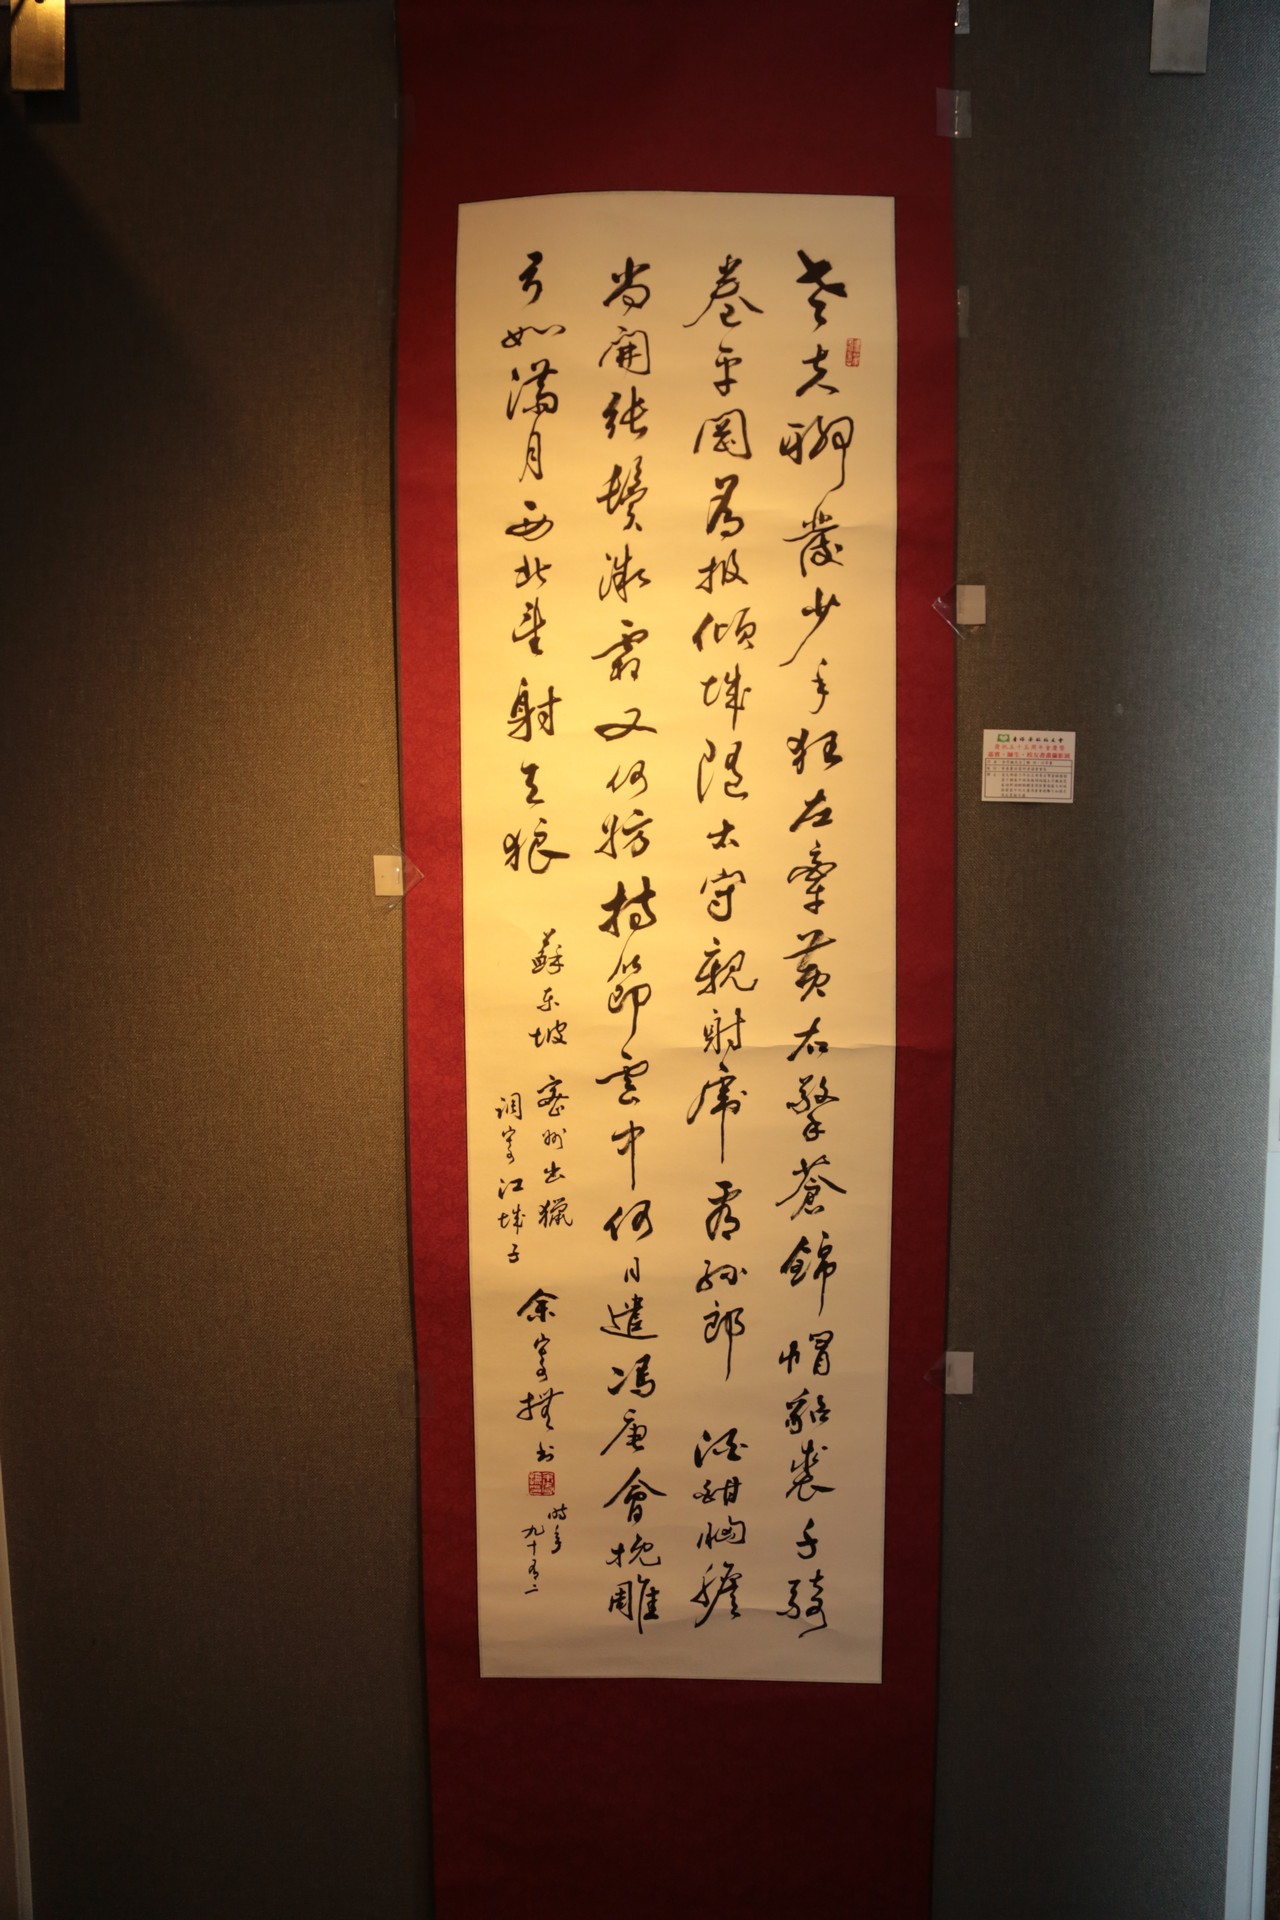 老夫聊發少年狂左牽黃右擎蒼錦帽貂裘千騎
卷平岡為報傾城隨太守親射虎看孫郎酒酣胸膽
尚開張鬢微霜又何妨持節雲中何日遣馮唐會挽雕
弓如滿月西北望射天狼
蘇東坡密州出獵
調寄江城子
余寄撫書
時年
九十有二